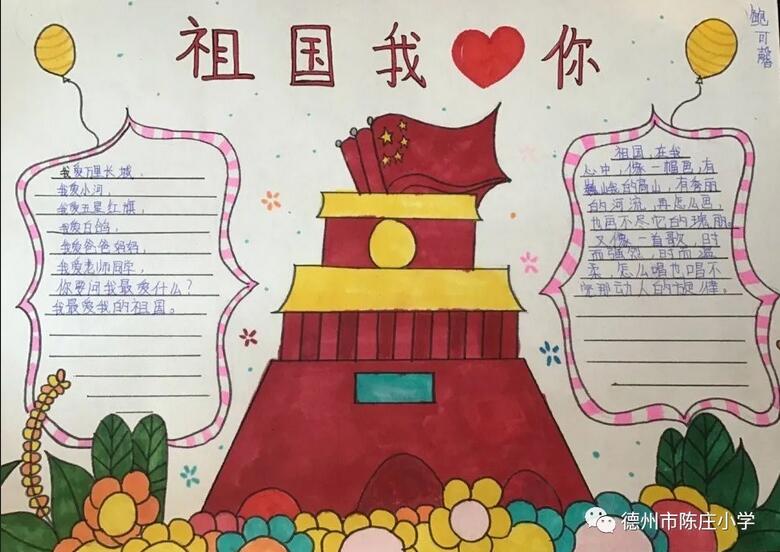 祖国我你
鲍可馨
我爱万里长城,
我爱小河,
我爱五星红旗,
我爱白鸽,
我爱爸爸妈妈,
我爱老师同学,
你要问我最爱什么?
我最爱我的祖国。
祖国,在我
心中,像一幅画,有
巍峨的高山,有秀丽
的河流,再怎么画,
也画不尽它的瑰丽。
又像一首歌,时
而强烈,时而温
柔,怎么唱也唱不
完那动人的旋律。
德州市陈庄小学